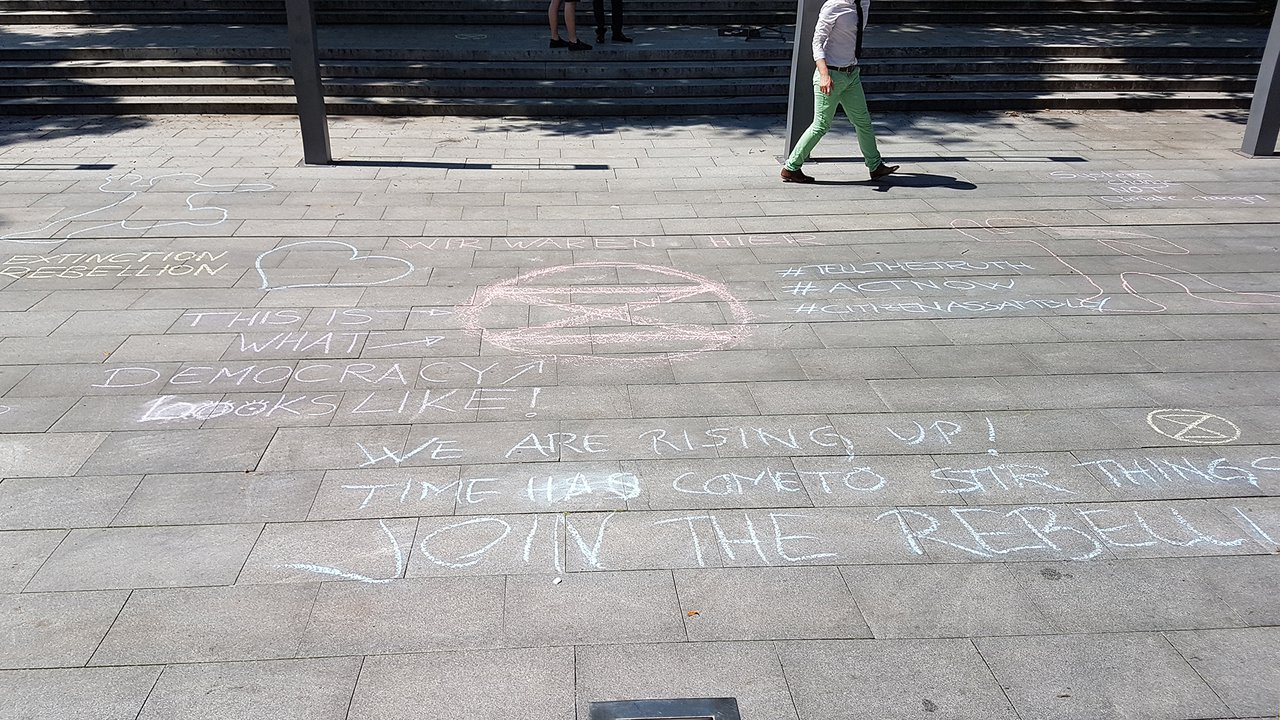 WIR WAREN HIER
EXTINCTION
REBELLION
#TELLTHETRUTH
#ACTNOW
#CITIZENASSAMBLEY
THIS IS
WHAT
DEMOCRACY
LOOKS LIKE!
WE ARE RISING UP!
TIME HAS COME TO STIR THINGS
JOIN THE REBELLI